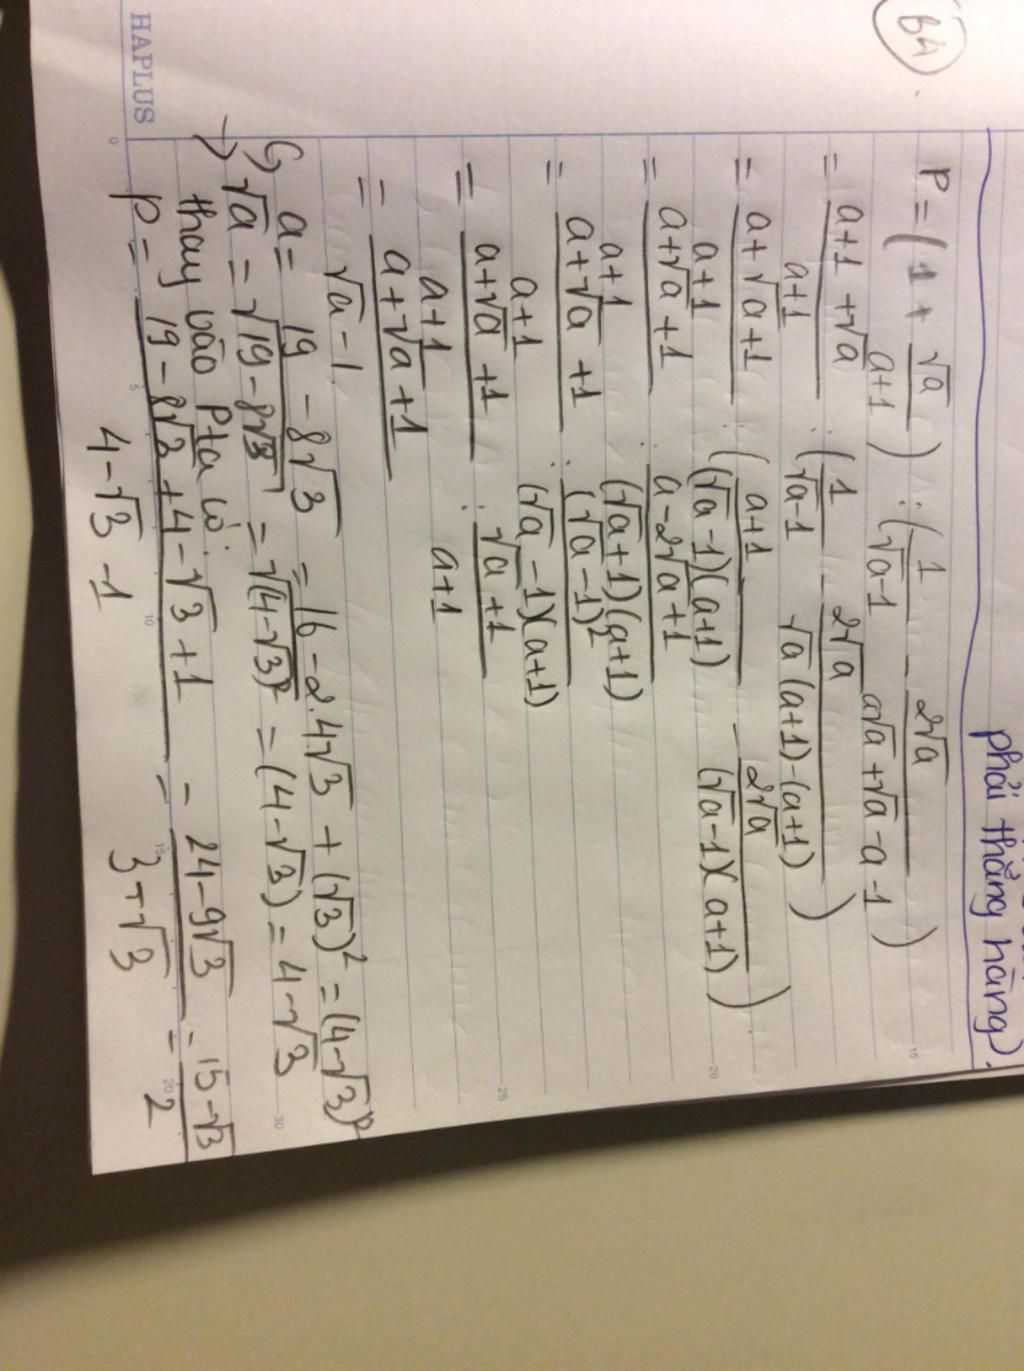 phải thẳng hàng).
B4
P = (1 + √a/(a+1)) : (1/(√a-1) - 2√a/(a√a+√a-a-1))
= (a+1+√a)/(a+1) : (1/(√a-1) - 2√a/(√a(a+1)-(a+1)))
= (a+√a+1)/(a+1) : ((a+1)/((√a-1)(a+1)) - 2√a/((√a-1)(a+1)))
= (a+√a+1)/(a+1) : (a-2√a+1)/((√a+1)(a+1))
= (a+√a+1)/(a+1) : (√a-1)²/((√a-1)(a+1))
= (a+√a+1)/(a+1) : (√a+1)/(a+1)
= (a+√a+1)/(√a-1)
a = 19 - 8√3 = 16 - 2.4√3 + (√3)² = (4-√3)²
→ √a = √(19-8√3) = √(4-√3)² = (4-√3) = 4-√3
thay vào P ta có:
P = (19-8√3+4-√3+1)/(4-√3-1) = (24-9√3)/(3-√3) = (15-√3)/2
HAPLUS